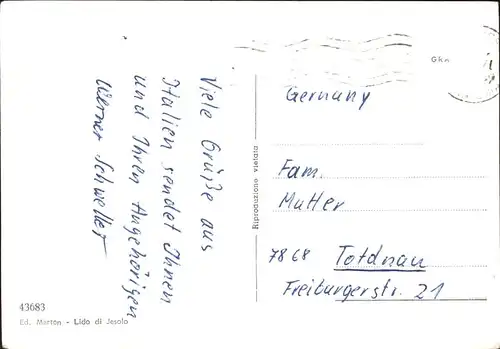 Viele Grüße aus
Italien sendet Ihnen
und Ihren Angehörigen
Werner Schweller
Gkn
Germany
Fam.
Mutter
7868 Totdnau
Freiburgerstr. 21
Riproduzione vietata
43683
Ed. Marton - Lido di Jesolo